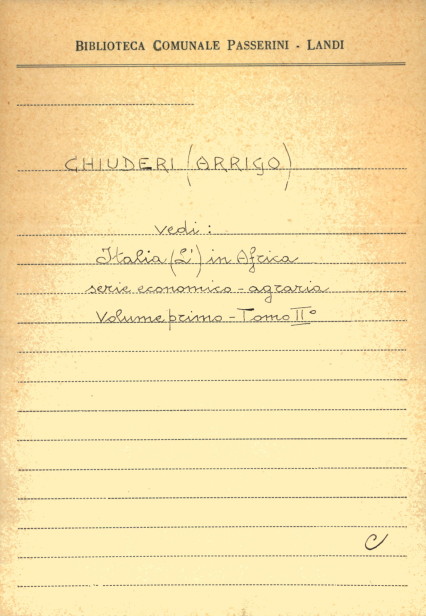 BIBLIOTECA COMUNALE PASSERINI - LANDI
CHIUDERI (ARRIGO)
vedi:
Italia (L') in Africa
serie economico - agraria
Volume primo - Tomo II°
C